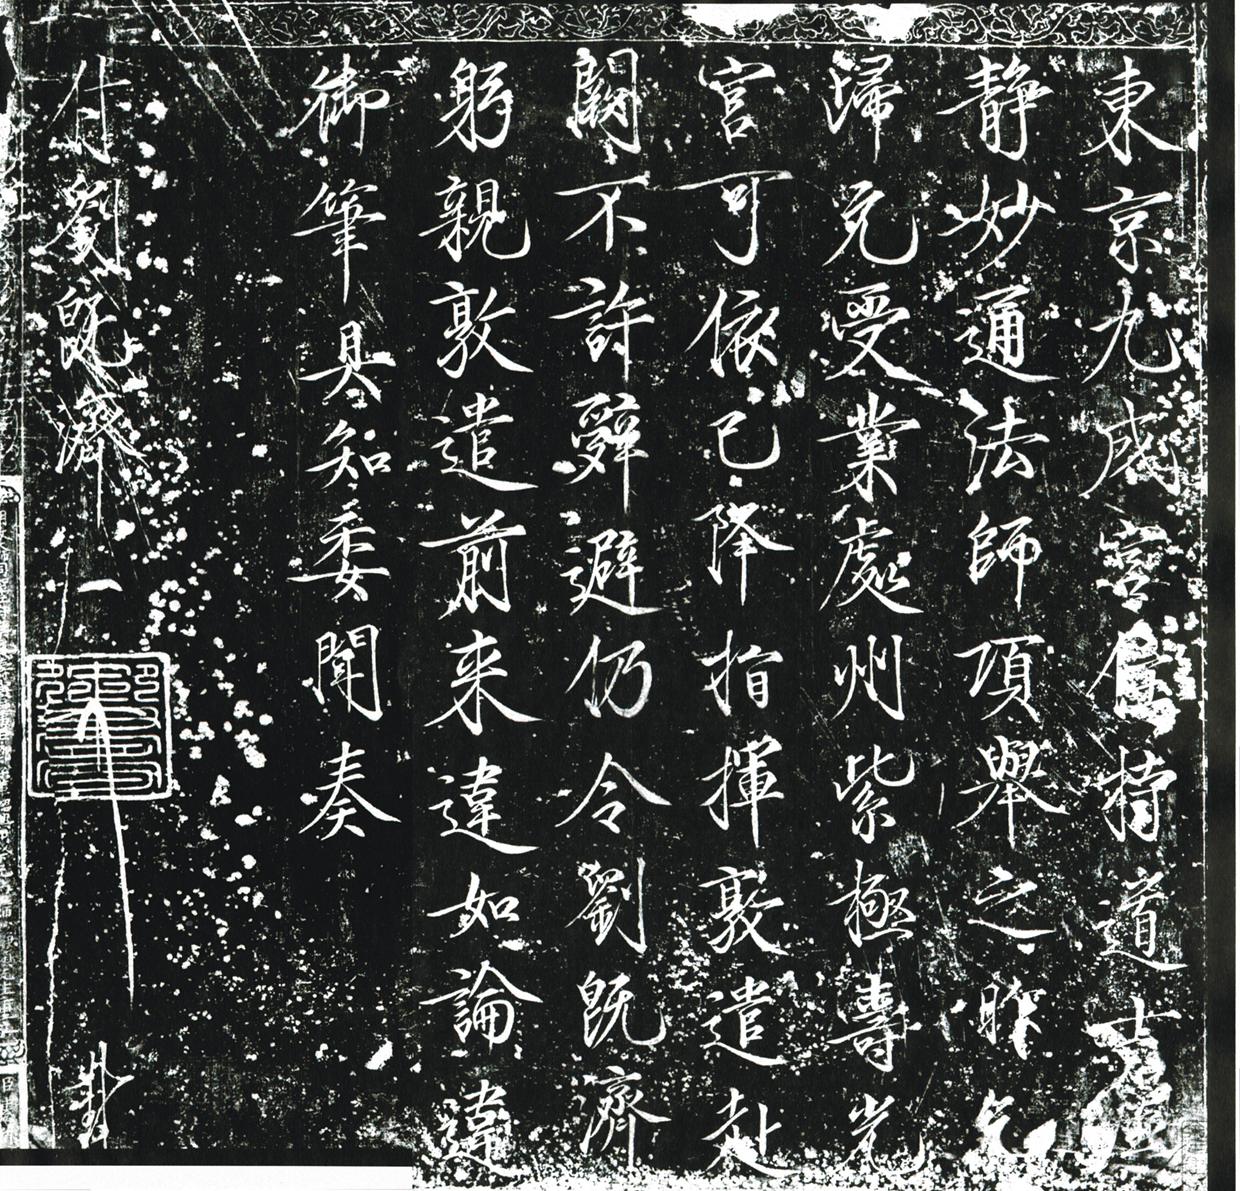 東京九成宮住持道士
静妙通法師項舉之昨乞
歸元受業處州紫極壽光
宮可依已降指揮敦遣赴
闕不許辭避仍令劉既濟
躬親敦遣前来違如論違
御筆具知委聞奏
付劉既濟
一
封